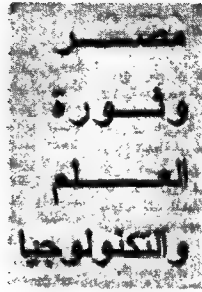 مصر
وثورة
العلم
والتكنولوجيا